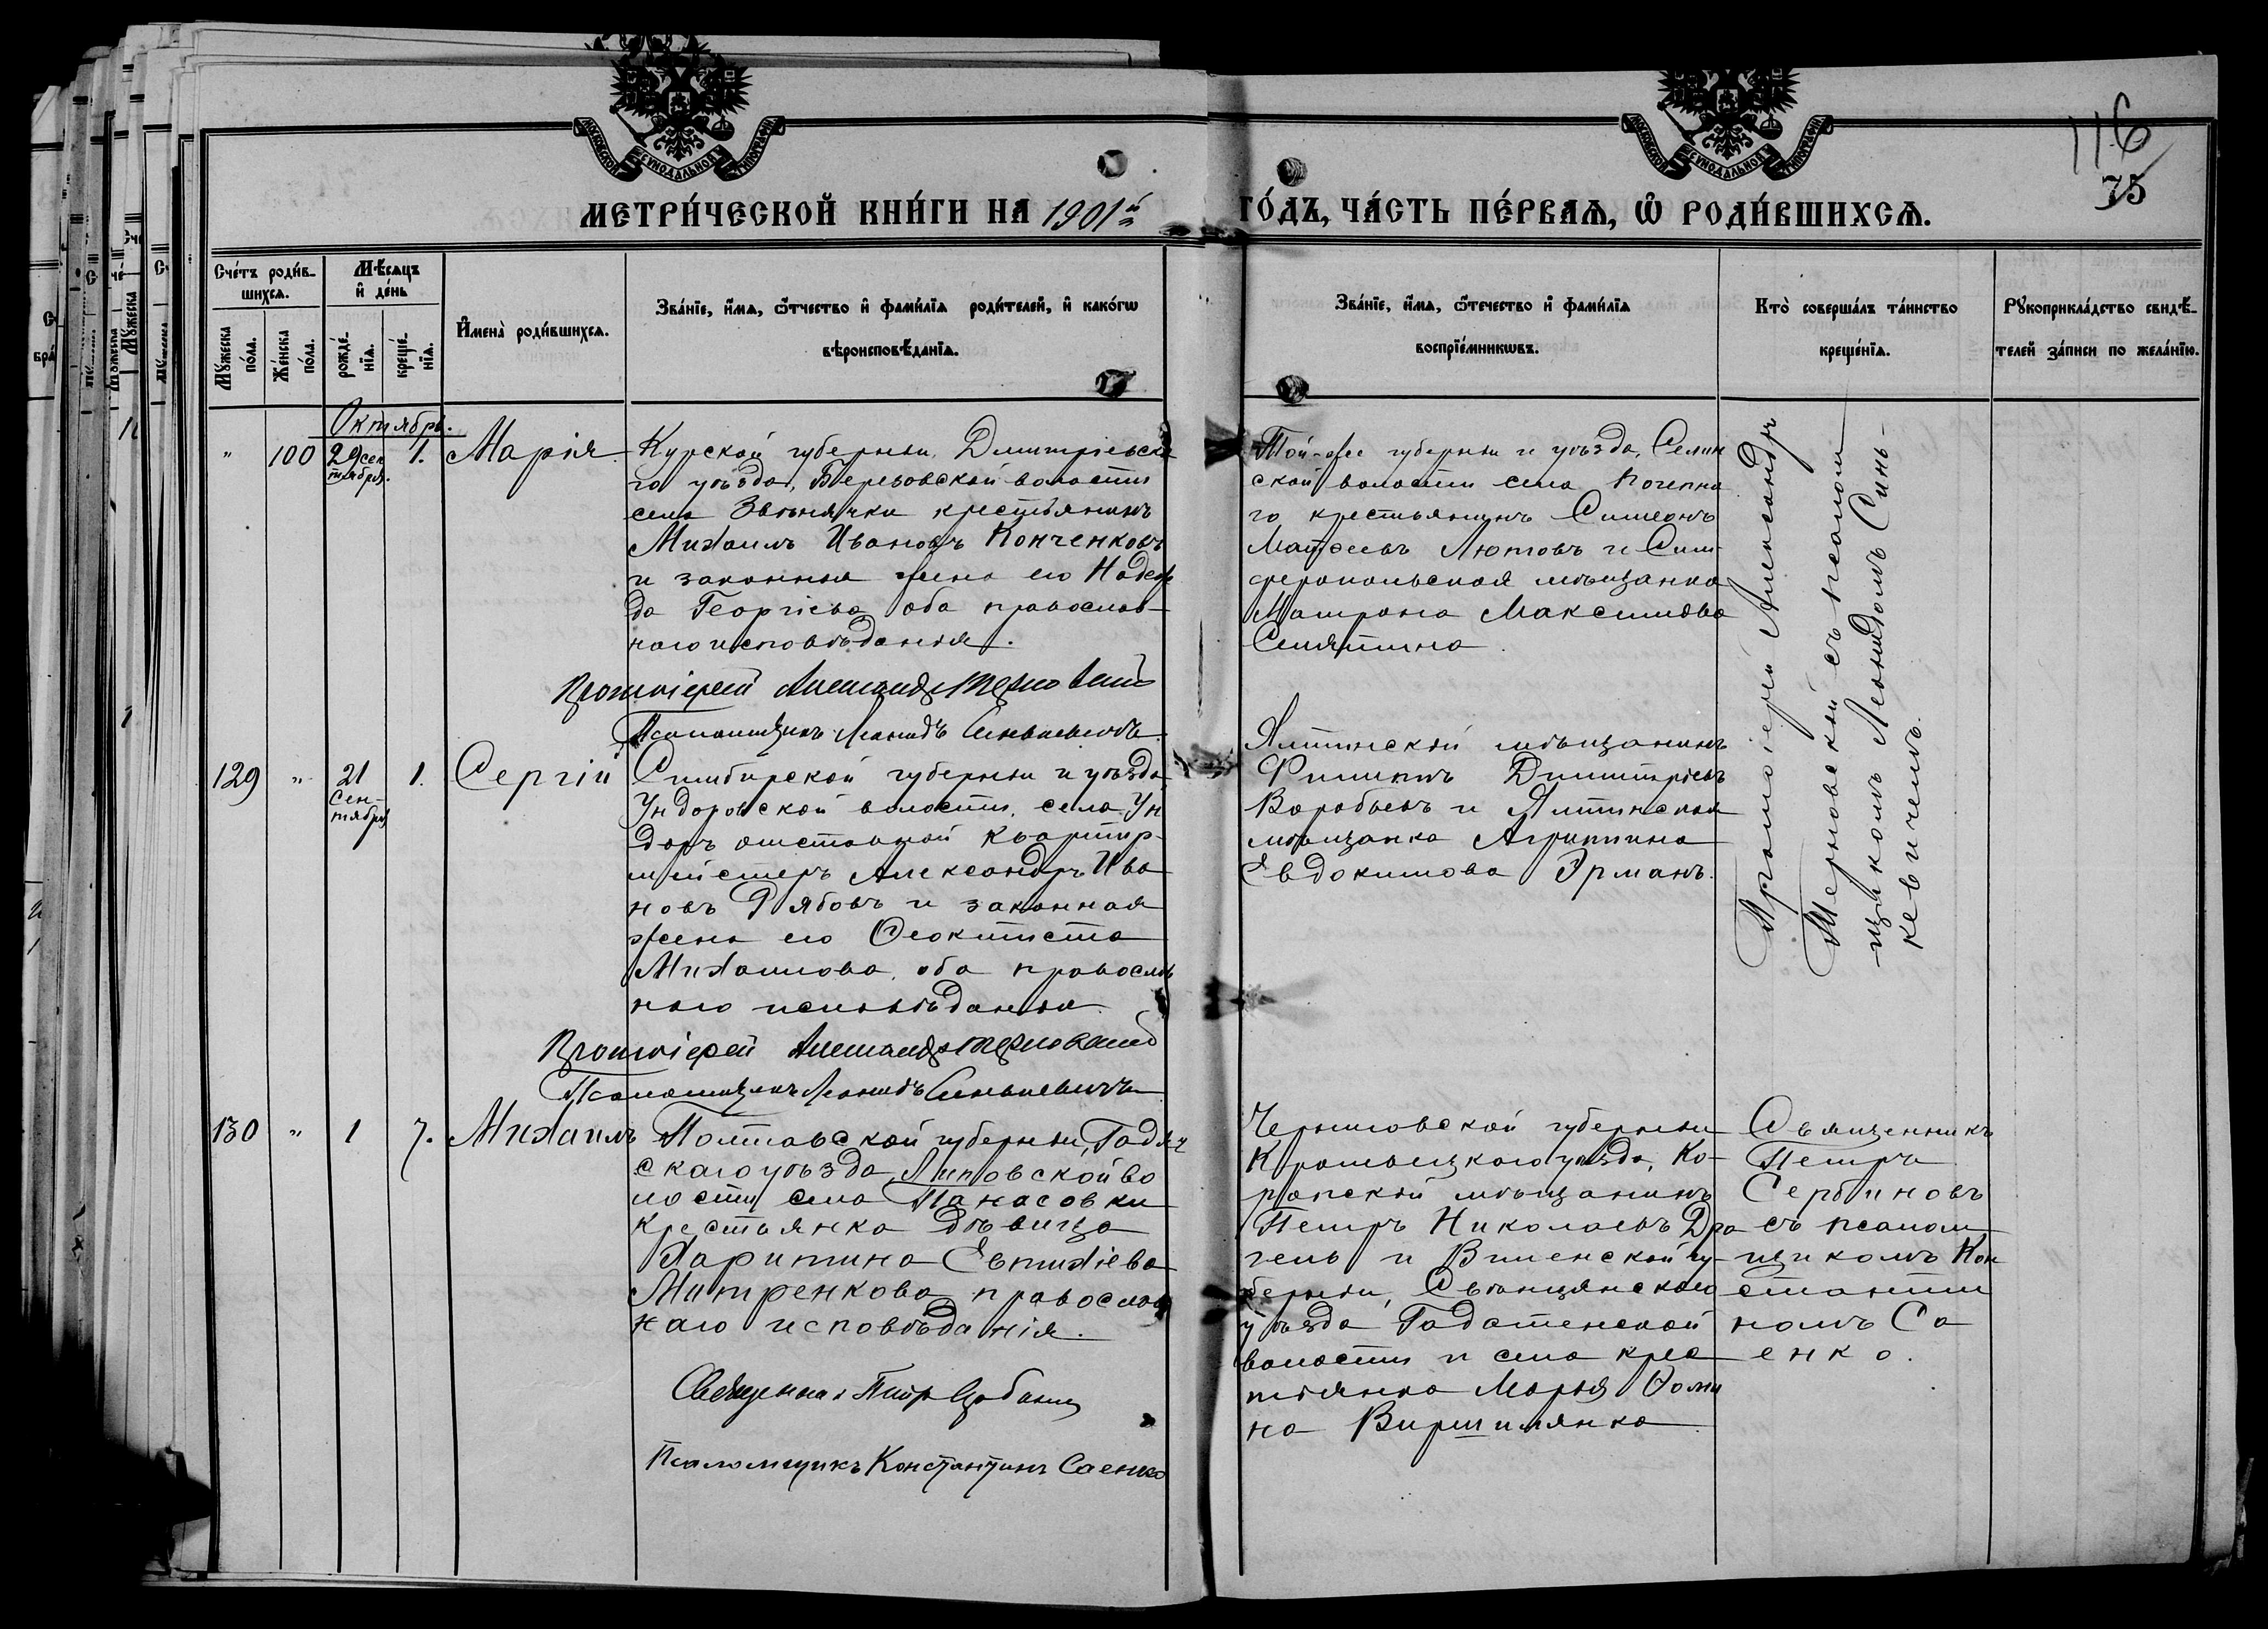 МОСКОВСКОЙ СѴНОДАЛЬНОЙ ТИПОГРАФІИ
МОСКОВСКОЙ СѴНОДАЛЬНОЙ ТИПОГРАФІИ
116
75
МЕТРИ́ЧЕСКОЙ КНИ́ГИ НА 1901й ГО́ДЪ, ЧА́СТЬ ПЕ́РВАѦ, Ѡ҆ РОДИ́ВШИХСѦ.
Сче́тъ роди́в-
шихсѧ.
Мꙋ́жеска по́ла.
Же́нска по́ла.
Мѣ́сѧцъ
и҆ де́нь
рожде́-
нїѧ.
креще́-
нїѧ.
И҆мена̀ роди́вшихсѧ.
Зва́нїе, и҆́мѧ, ѻ҆́тчество и҆ фами́лїѧ роди́телей, и҆ како́гѡ
вѣроисповѣ́данїѧ.
Зва́нїе, и҆́мѧ, ѻ҆́течество и҆ фами́лїѧ
воспрїе́мникѡвъ.
Кто̀ соверша́лъ та́инство
креще́нїѧ.
Рꙋкоприкла́дство свидѣ́-
телей за́писи по жела́нїю.
Октябрь.
" 100 29 сен
тября. 1. Марія
Курской губерніи, Димитріевска
го уѣзда, Березовской волости
села Звѣнячки крестьянинъ
Михаилъ Ивановъ Конченковъ
и законная жена его Надеж
да Георгіева, оба православ-
наго исповѣданія.
Протоіерей Александръ Терновскій
Псаломщикъ Леонидъ Синькевичъ
Той-же губерніи и уѣзда, Селин
ской волости села Почепна
го крестьянинъ Симеонъ
Матѳеевъ Лютовъ и Сим-
феропольская мѣщанка
Матрона Максимова
Семятина.
Протоіерей Александръ
Терновскій съ псалом
щикомъ Леонидомъ Синь-
кевичемъ.
129 " 21
Сен-
тября 1. Сергій
Симбирской губерніи и уѣзда,
Ундоровской волости, села Ун
доръ отставной квартир-
мейстеръ Александръ Ива
новъ Рябовъ и законная
жена его Ѳеоктиста
Михаилова, оба православ
наго исповѣданія.
Протоіерей Александръ Терновскій
Псаломщикъ Леонидъ Синькевичъ
Ялтинскій мѣщанинъ
Филиппъ Димитріевъ
Воробьевъ и Ялтинская
мѣщанка Агриппина
Евдокимова Эрманъ.
130 " 1 7. Михаилъ
Полтавской губерніи, Гадяч
скаго уѣзда, Липовской во
лости села Панасовки
крестьянка дѣвица
Харитина Евтихіева
Митренкова православ
наго исповѣданія.
Священникъ Петръ Сербиновъ
Псаломщикъ Константинъ Саенко
Черниговской губерніи
Кролевецкаго уѣзда, Ко-
ропскій мѣщанинъ
Петръ Николаевъ Дра
гель и Виленской гу-
берніи, Свѣнцянскаго
уѣзда Годатенской
волости и села крес
тьянка Марья Ѳоми
на Виршилянка.
Священникъ
Петръ
Сербиновъ
съ псалом
щикомъ Кон
станти
номъ Са
енко.